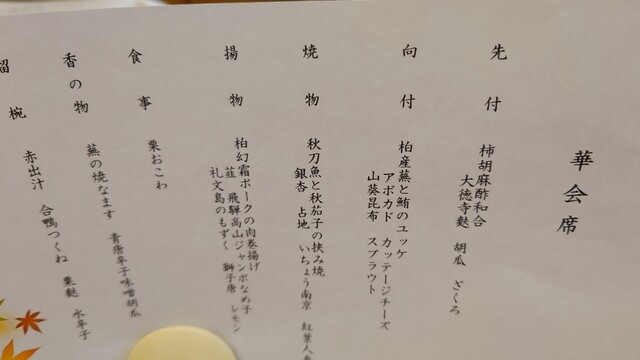 華会席
先付
柿胡麻酢和合
大徳寺麩 胡瓜 ざくろ
向付
柏産蕪と鮪のユッケ
アボカド カッテージチーズ
山葵昆布 スプラウト
焼物
秋刀魚と秋茄子の挟み焼
銀杏 占地 いちょう南京 紅葉人
揚物
柏幻霜ポークの肉巻揚げ
韮 飛騨高山ジャンボなめ子
礼文島のもずく 獅子唐 レモン
食事
栗おこわ
香の物
蕪の焼なます 青唐辛子味噌胡瓜
留椀
赤出汁 合鴨つくね 粟麩 水辛子